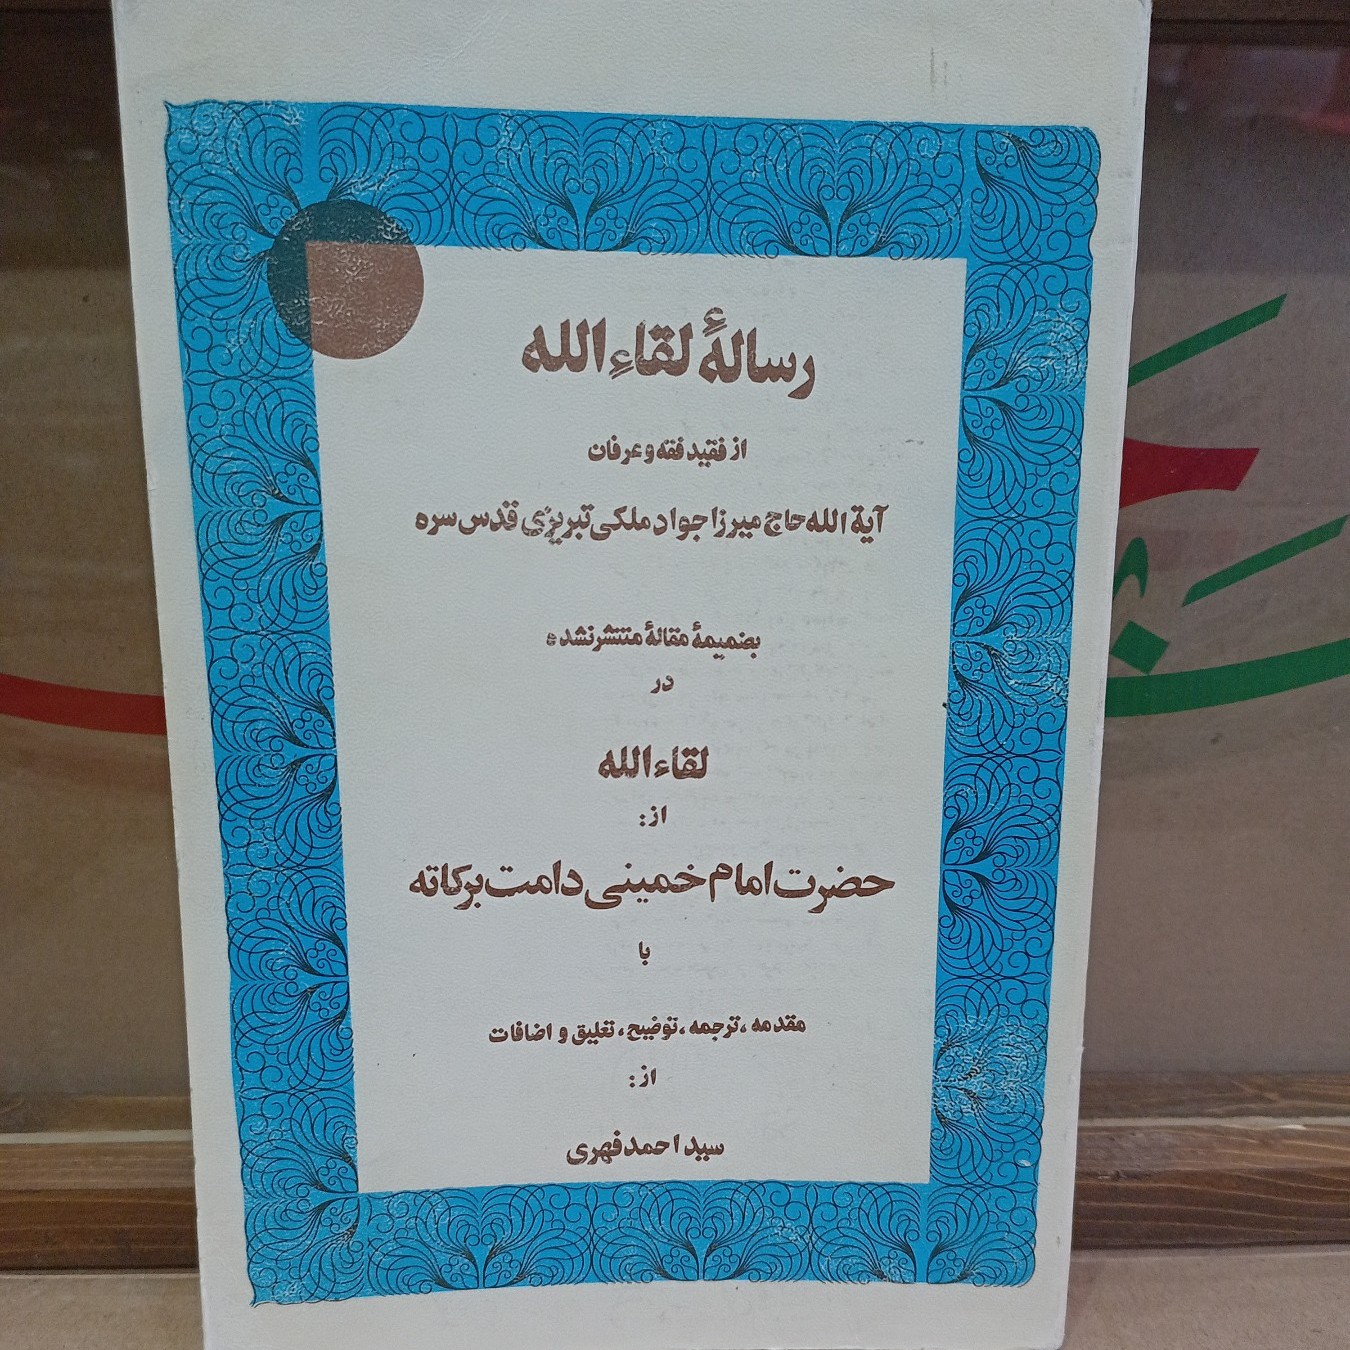 رسالهٔ لقاءِ الله
از فقید فقه و عرفان
آیة الله حاج میرزا جواد ملکی تبریزی قدس سره
بضمیمهٔ مقالهٔ منتشر نشده
در
لقاء الله
از:
حضرت امام خمینی دامت برکاته
با
مقدمه، ترجمه، توضیح، تعلیق و اضافات
از:
سید احمد فهری